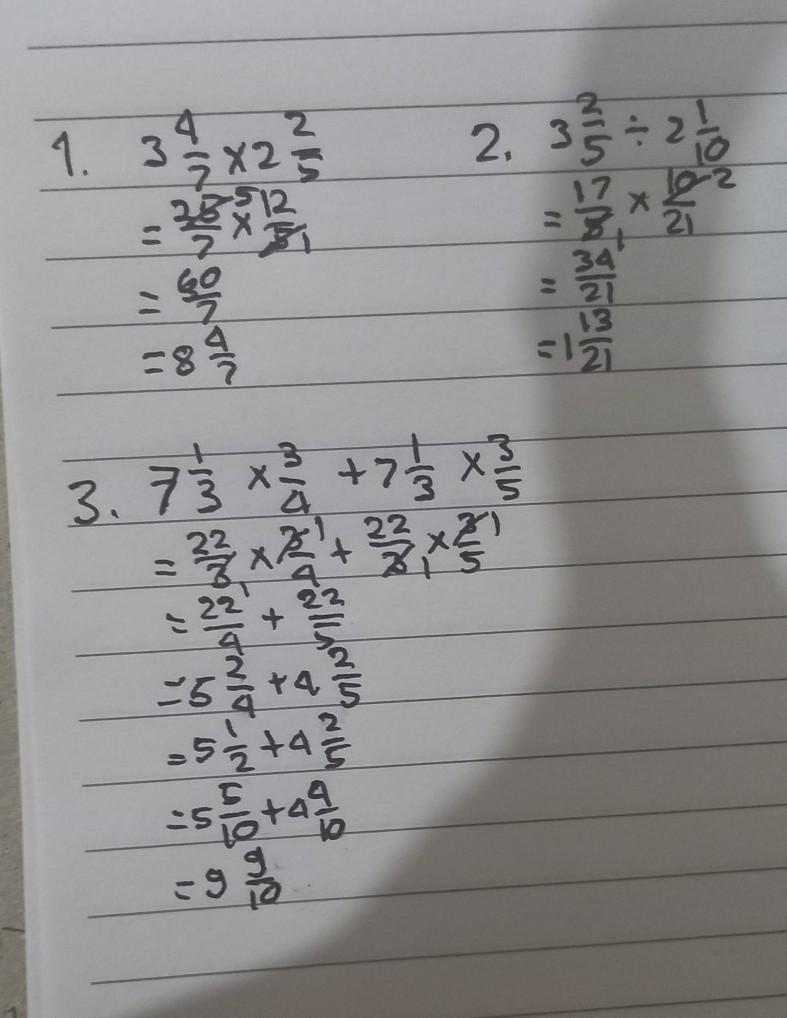 1. 3 4/7 × 2 2/5
= 25/7 5 × 12/5 1
= 60/7
= 8 4/7
2. 3 2/5 ÷ 2 1/10
= 17/5 1 × 10/21 2
= 34/21
= 1 13/21
3. 7 1/3 × 3/4 + 7 1/3 × 3/5
= 22/3 1 × 3/4 1 + 22/3 1 × 3/5 1
= 22/4 + 22/5
= 5 2/4 + 4 2/5
= 5 1/2 + 4 2/5
= 5 5/10 + 4 4/10
= 9 9/10